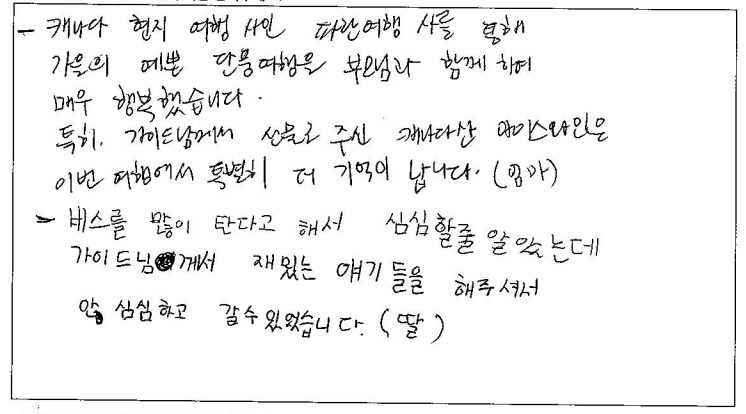 - 캐나다 현지 여행 사인 파란여행 사를 통해
가을의 예쁜 단풍여행을 부모님과 함께 하여
매우 행복했습니다.
특히. 가이드님께서 선물로 주신 캐나다산 아이스와인은
이번 여행에서 특별히 더 기억이 납니다. (엄마)
- 버스를 많이 탄다고 해서 심심할줄 알았는데
가이드님께서 재밌는 얘기들을 해주셔서
안 심심하고 갈수있었습니다. (딸)